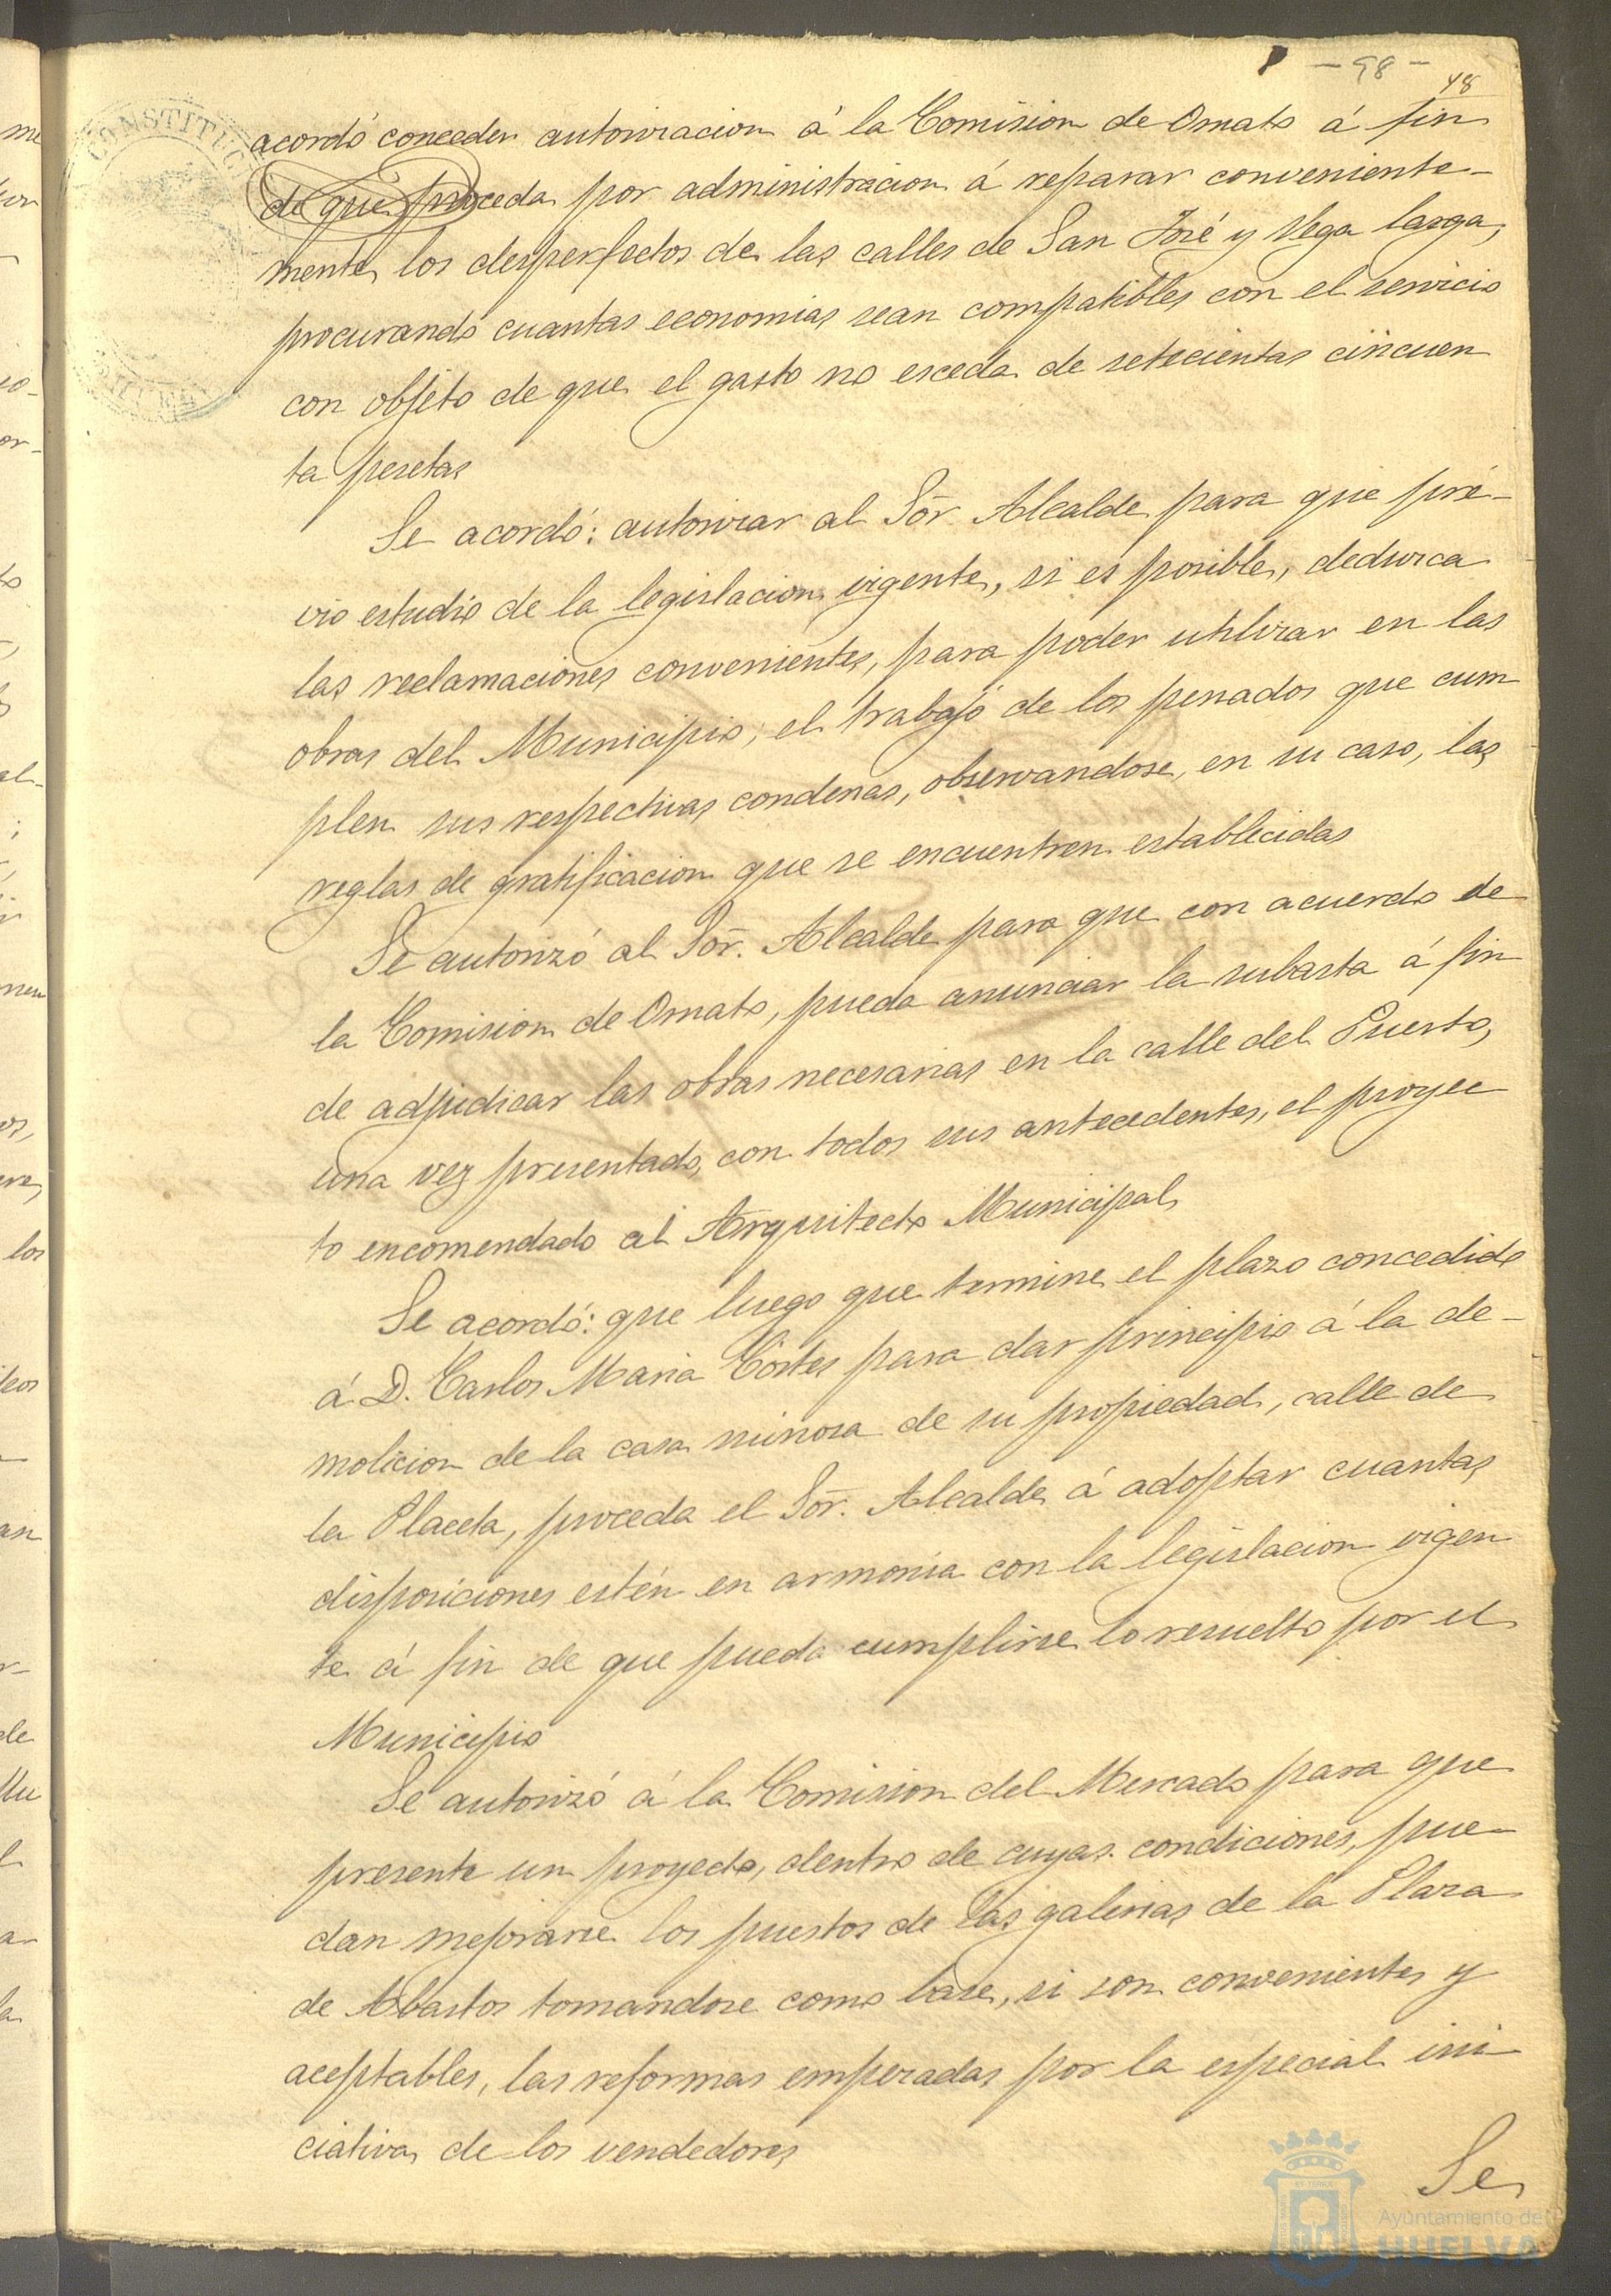 - 98 -
48
acordó conceder autorizacion á la Comision de Ornato á fin
de que proceda por administracion á reparar conveniente-
mente los desperfectos de las calles de San José y Vega larga,
procurando cuantas economias sean compatibles con el servicio
con objeto de que el gasto no esceda de setecientas cincuen
ta pesetas
Se acordó: autorizar al Sõr. Alcalde para que pré-
vio estudio de la legislacion vigente, si es posible, deduzca
las reclamaciones convenientes, para poder utilizar en las
obras del Municipio, el trabajo de los penados que cum
plen sus respectivas condenas, observandose, en su caso, las
reglas de gratificacion que se encuentren establecidas
Se autorizó al Sõr. Alcalde para que con acuerdo de
la Comision de Ornato, pueda anunciar la subasta á fin
de adjudicar las obras necesarias en la calle del Puerto,
una vez presentado, con todos sus antecedentes, el proyec
to encomendado al Arquitecto Municipal
Se acordó: que luego que termine el plazo concedido
á D. Carlos Maria Cortes para dar principio á la de-
molicion de la casa ruinosa de su propiedad, calle de
la Placeta, proceda el Sõr. Alcalde á adoptar cuantas
disposiciones estén en armonia con la legislacion vigen
te á fin de que pueda cumplirse lo resuelto por el
Municipio
Se autorizó á la Comision del Mercado para que
presente un proyecto, dentro de cuyas condiciones, pue-
dan mejorarse los puestos de las galerias de la Plaza
de Abastos tomandose como base, si son convenientes y
aceptables, las reformas empezadas por la especial ini
ciativa de los vendedores
Se
Ayuntamiento de
HUELVA
CONSTITUC